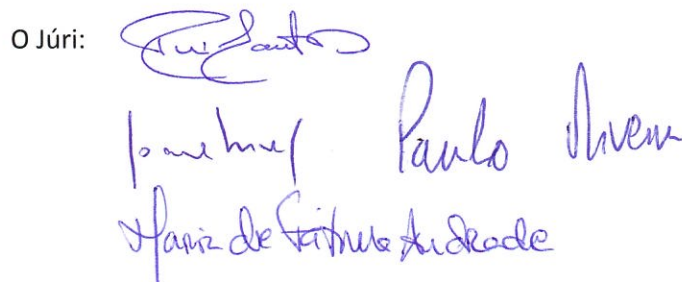 O Júri: Rui Santos
Paulo Oliveira
Maria de Fátima Andrade